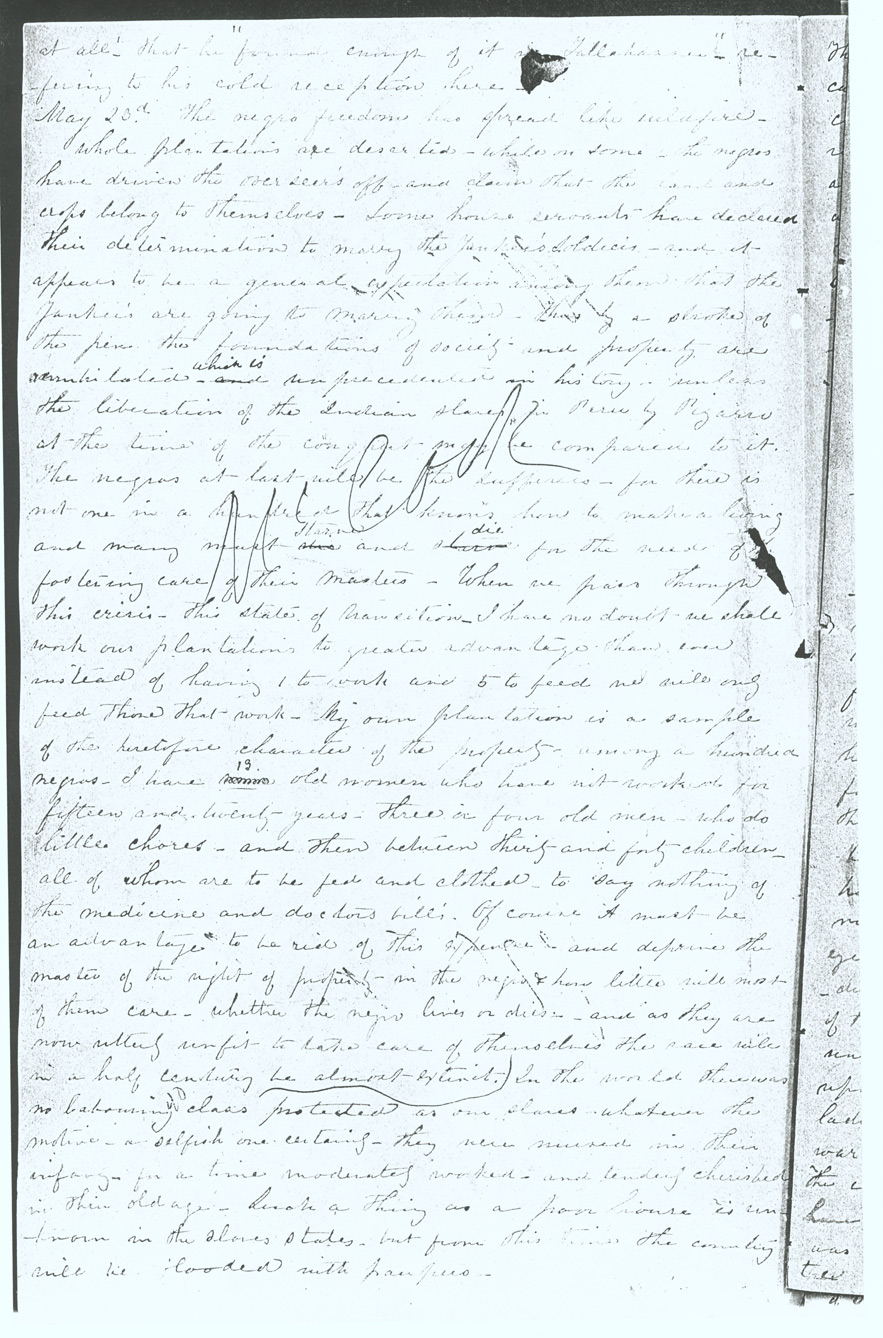 at all" - that he "found enough of it in Tallahassee" - re-
ferring to his cold reception there -
May 23d. The negro freedom has spread like wildfire -
whole plantations are deserted - while on some - the negros
have driven the overseers off - and claim that the land and
crops belong to themselves - Some house servants have declared
their determination to marry the Yankees Soldiers - and it
appears to be a general expectation among them that the
Yankeis are going to marry them - thus by a stroke of
the pen the foundations of society and property are
annihilated - which is and unprecedented in history - unless
the liberation of the Indian slaves in Peru by Pizarro
at the time of the conquest may be compared to it.
The negros at last will be the sufferers - for there is
not one in a hundred that knows how to make a living
and many must starve and die for the need of
fostering care of their masters - When we pass through
this crisis - this state of transition - I have no doubt we shall
work our plantations to greater advantage than ever
instead of having 1 to work and 5 to feed we will only
feed those that work - My own plantation is a sample
of the heretofore character of the property - among a hundred
negros - I have 13 old women who have not worked for
fifteen and twenty years - three or four old men - who do
little chores - and then between thirty and forty children -
all of whom are to be fed and clothed - to say nothing of
the medicine and doctors bills. Of course it must be
an advantage to be rid of this expense - and deprive the
master of the right of property in the negro & how little will most
of them care - whether the negro lives or dies - and as they are
now utterly unfit to take care of themselves the race will
in a half century be almost extinct.) In the world there was
no labouring class protected as our slaves - whatever the
motive - a selfish one certainly - they were nursed in their
infancy - for a time moderately worked - and tenderly cherished
in their old age - Such a thing as a poor house is un-
known in the slaves states - but from this time the country
will be flooded with paupers -